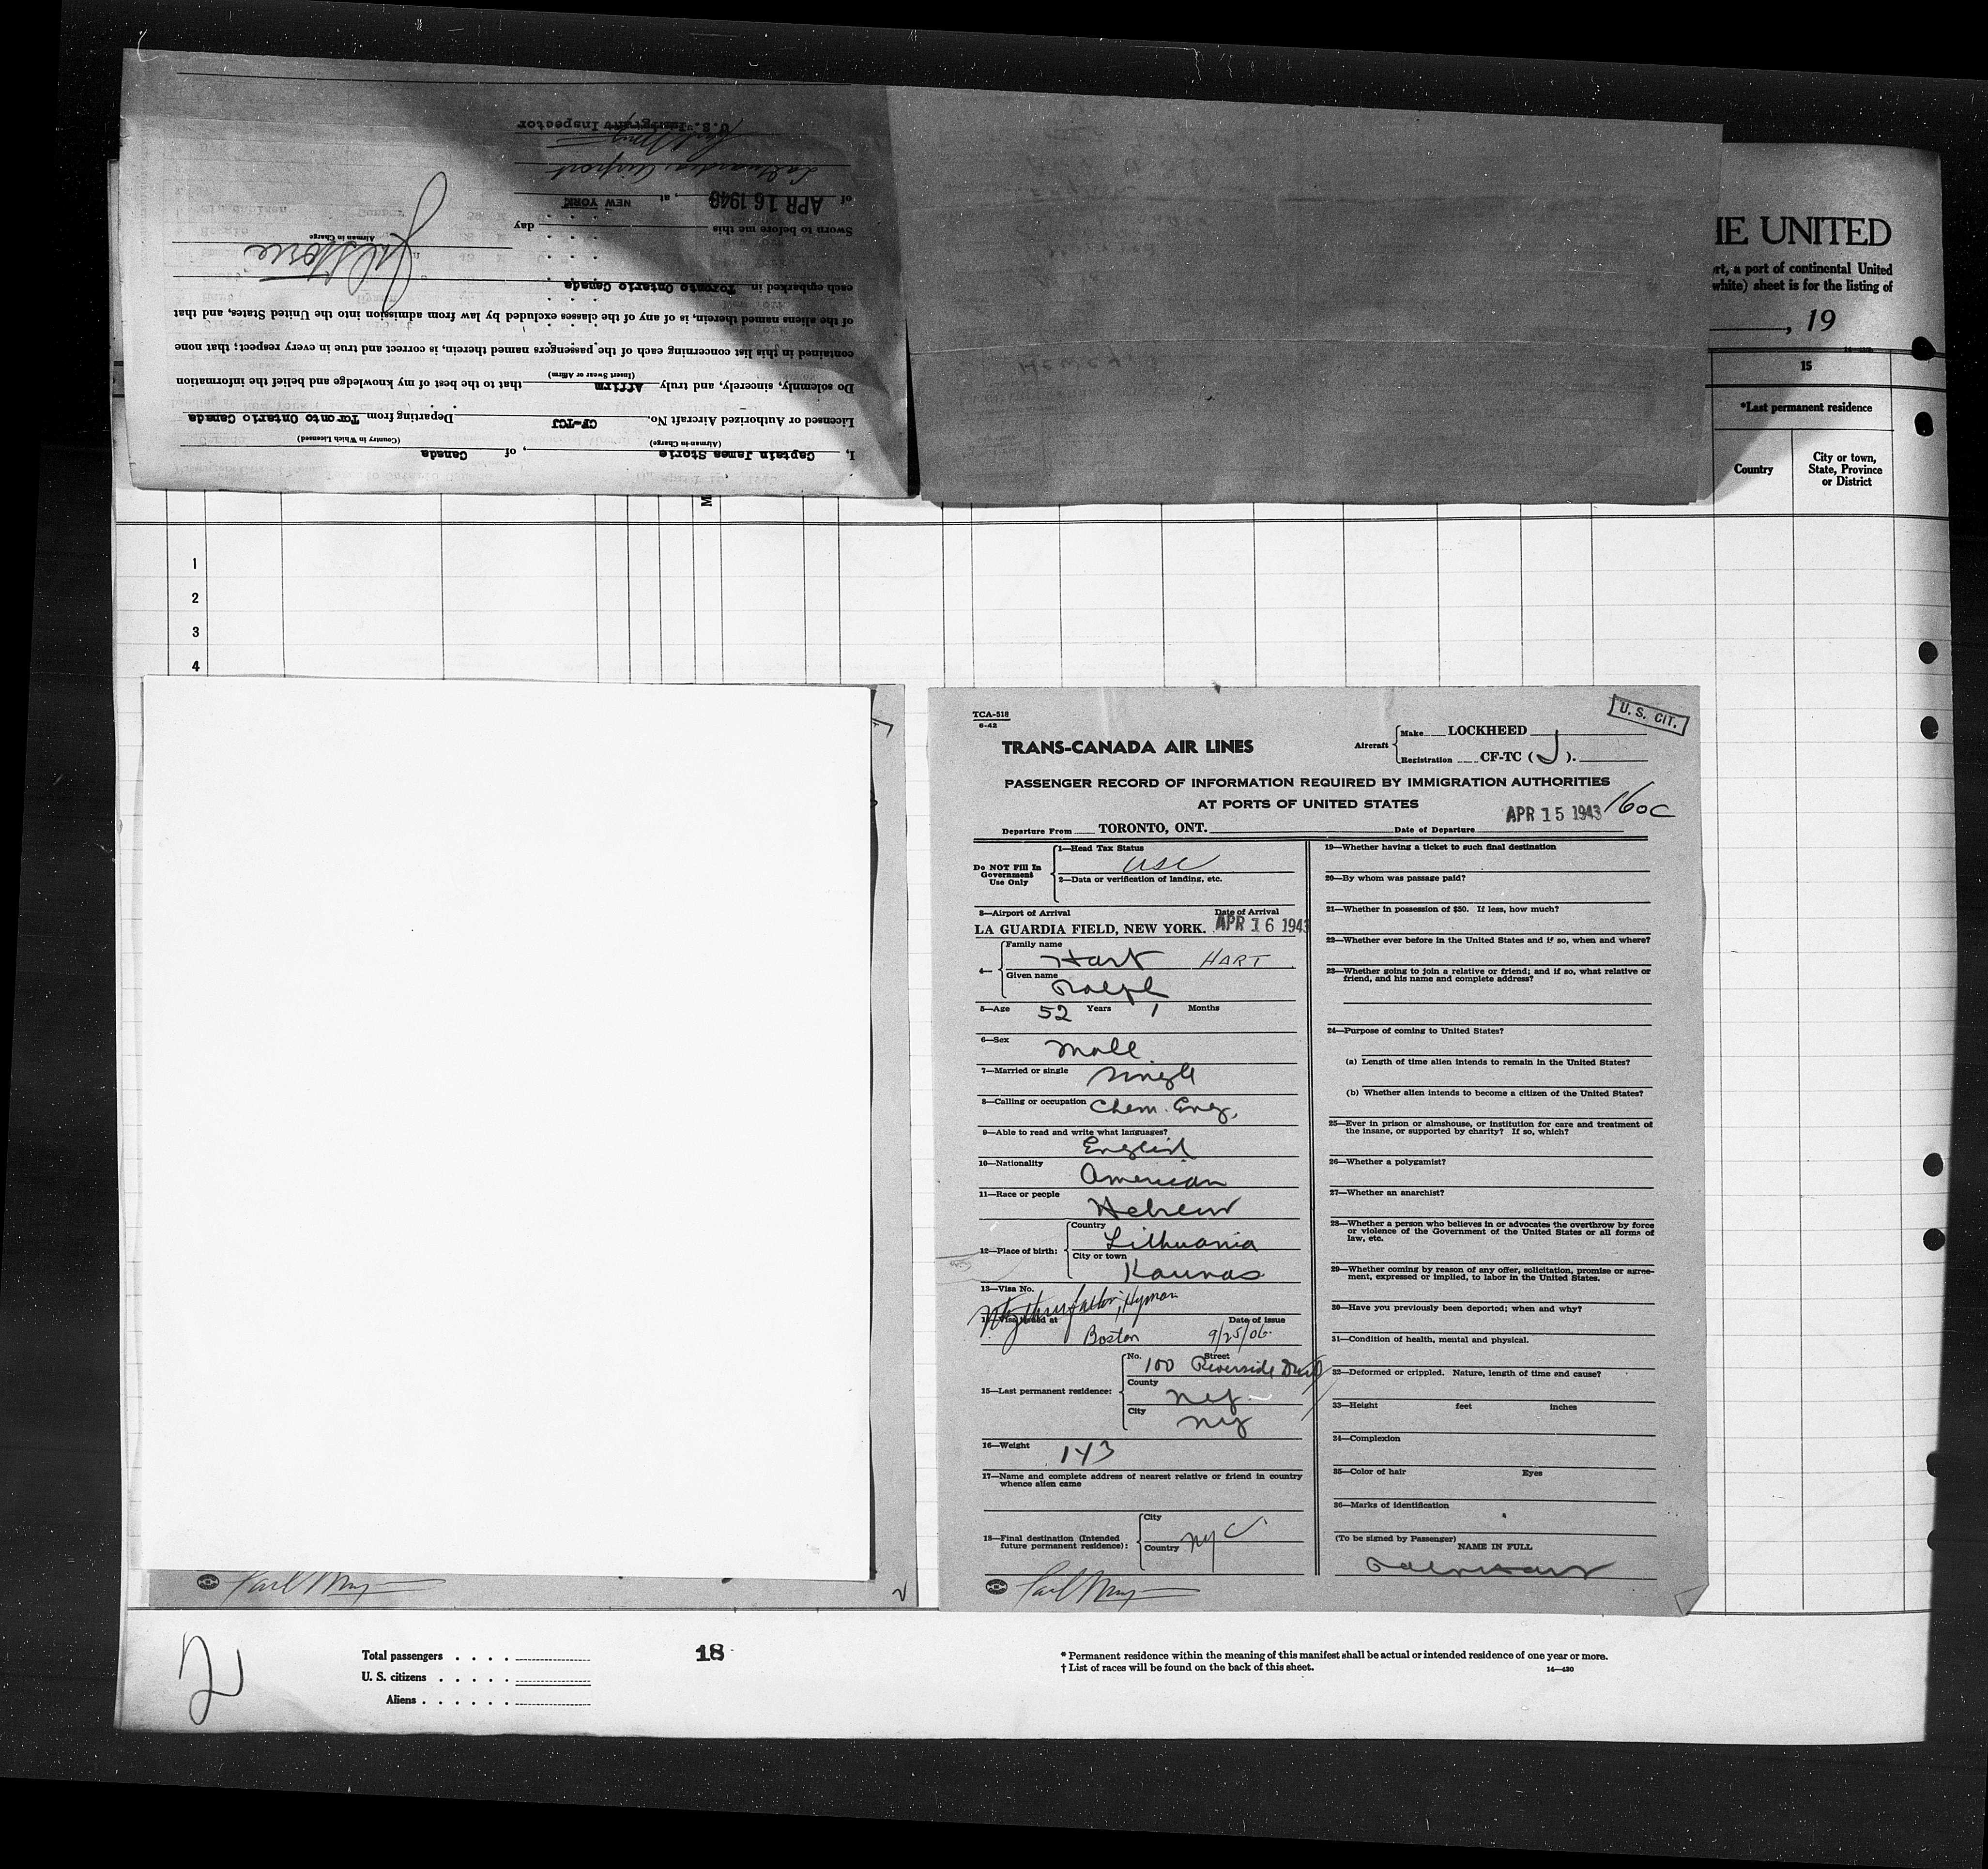 I, Captain James Storie, of Canada
(Airman-in-Charge) (Country in Which Licensed)
Licensed or Authorized Aircraft No. CF-TCJ Departing from Toronto Ontario Canada
Do solemnly, sincerely, and truly Affirm that to the best of my knowledge and belief the information
(Insert Swear or Affirm)
contained in this list concerning each of the passengers named therein, is correct and true in every respect; that none
of the aliens named therein, is of any of the classes excluded by law from admission into the United States, and that
each embarked in Toronto Ontario Canada
Airman in Charge
Sworn to before me this day
of APR 16 1943, at NEW YORK
LaGuardia Airport
U.S. Immigrant Inspector
HE UNITED
rt, a port of continental United
white) sheet is for the listing of
, 19
15
*Last permanent residence
Country
City or town,
State, Province
or District
M
1
2
3
4
TCA-518
6-42
U. S. CIT.
TRANS-CANADA AIR LINES
Aircraft
Make LOCKHEED
Registration CF-TC (J).
PASSENGER RECORD OF INFORMATION REQUIRED BY IMMIGRATION AUTHORITIES
AT PORTS OF UNITED STATES
APR 15 1943 160C
Departure From TORONTO, ONT. Date of Departure
Do NOT Fill In
Government
Use Only
1—Head Tax Status
USC
2—Data or verification of landing, etc.
3—Airport of Arrival Date of Arrival
LA GUARDIA FIELD, NEW YORK. APR 16 1943
4—
Family name
Hart HART
Given name
Ralph
5—Age 52 Years 1 Months
6—Sex
Male
7—Married or single Single
8—Calling or occupation Chem. Eng.
9—Able to read and write what languages?
English
10—Nationality
American
11—Race or people
Hebrew
12—Place of birth:
Country
Lithuania
City or town
Kaunas
13—Visa No.
father, Hyman
14—Visa issued at Date of issue
Boston 9/25/06.
15—Last permanent residence:
No. Street
100 Riverside Drive
County
NY
City
NY
16—Weight
143
17—Name and complete address of nearest relative or friend in country
whence alien came
18—Final destination (Intended
future permanent residence):
City
Country NYC
19—Whether having a ticket to such final destination
20—By whom was passage paid?
21—Whether in possession of $50. If less, how much?
22—Whether ever before in the United States and if so, when and where?
23—Whether going to join a relative or friend; and if so, what relative or
friend, and his name and complete address?
24—Purpose of coming to United States?
(a) Length of time alien intends to remain in the United States?
(b) Whether alien intends to become a citizen of the United States?
25—Ever in prison or almshouse, or institution for care and treatment of
the insane, or supported by charity? If so, which?
26—Whether a polygamist?
27—Whether an anarchist?
28—Whether a person who believes in or advocates the overthrow by force
or violence of the Government of the United States or all forms of
law, etc.
29—Whether coming by reason of any offer, solicitation, promise or agree-
ment, expressed or implied, to labor in the United States.
30—Have you previously been deported; when and why?
31—Condition of health, mental and physical.
32—Deformed or crippled. Nature, length of time and cause?
33—Height feet inches
34—Complexion
35—Color of hair Eyes
36—Marks of identification
(To be signed by Passenger)
NAME IN FULL
Ralph Hart
2
Total passengers
U. S. citizens
Aliens
18
* Permanent residence within the meaning of this manifest shall be actual or intended residence of one year or more.
† List of races will be found on the back of this sheet. 14—420